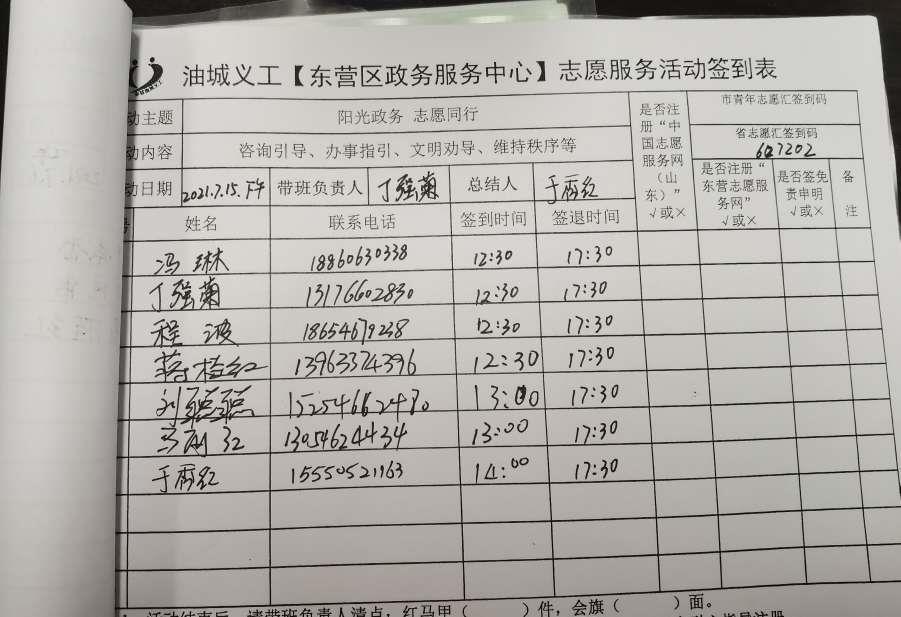 油城义工【东营区政务服务中心】志愿服务活动签到表
动主题 阳光政务 志愿同行 是否注册“中国志愿服务网（山东）”√或× 市青年志愿汇签到码
动内容 咨询引导、办事指引、文明劝导、维持秩序等 省志愿汇签到码
627202
动日期 2021.7.15.下午 带班负责人 丁强菊 总结人 于秀红 是否注册“东营志愿服务网”√或× 是否签免责申明√或× 备注
号 姓名 联系电话 签到时间 签退时间
冯琳 18860630338 12:30 17:30
丁强菊 13176602830 12:30 17:30
程波 18654679238 12:30 17:30
蒋桂红 13963374396 12:30 17:30
刘聪聪 15254662480 13:00 17:30
13054624434 13:00 17:30
于秀红 15550521963 14:00 17:30
活动结束后，请带班负责人清点：红马甲（ ）件，会旗（ ）面。